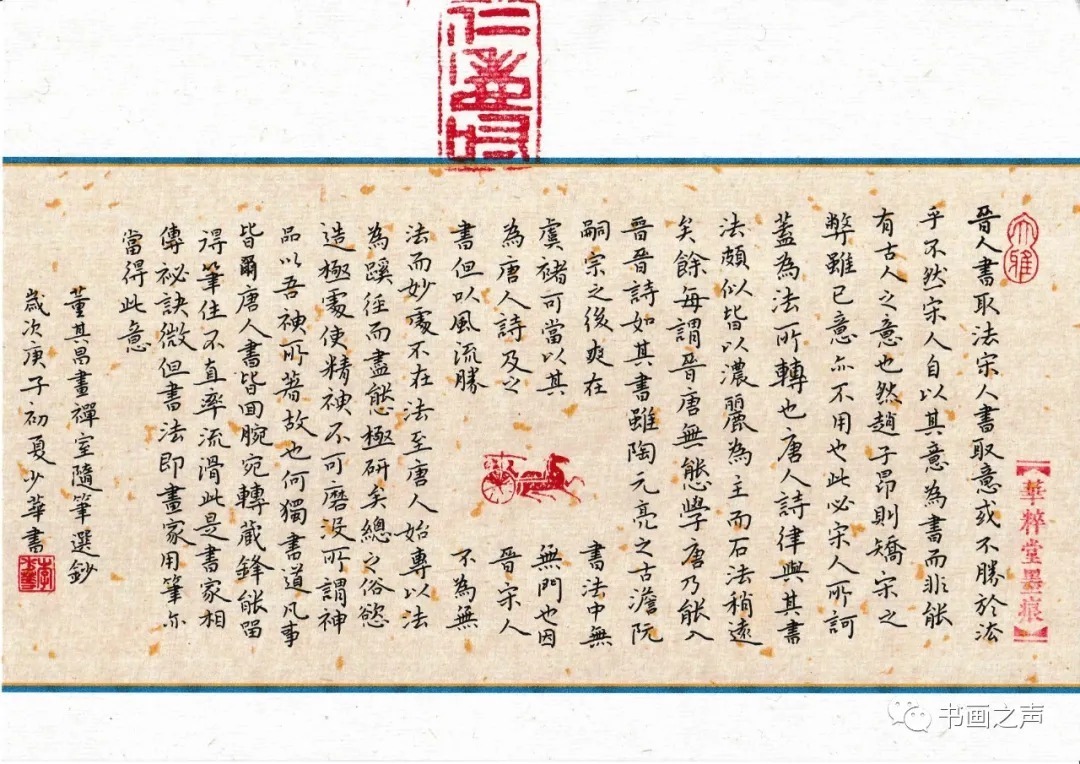 大雅
晉人書取法宋人書取意或不勝於法
乎不然宋人自以其意為書而非能
有古人之意也然趙子昂則矯宋之
弊雖已意亦不用也此必宋人所訶
蓋為法所轉也唐人詩律與其書
法頗似皆以濃麗為主而石法稍遠
矣餘每謂晉唐無態學唐乃能入
晉晉詩如其書雖陶元亮之古澹阮
嗣宗之後爽在 書法中無
虞褚可當以其 無門也因
為唐人詩及之 晉宋人
書但以風流勝 不為無
法而妙處不在法至唐人始專以法
為蹊徑而盡態極研矣總之俗慾
造極處使精神不可磨没所謂神
品以吾神所著故也何獨書道凡事
皆爾唐人書皆回腕宛轉藏鋒能留
得筆住不直率流滑此是書家相
傳祕訣微但書法即畫家用筆亦
當得此意
董其昌畫禪室隨筆選鈔
歲次庚子初夏少華書
李少華
【華粹堂墨痕】
书画之声